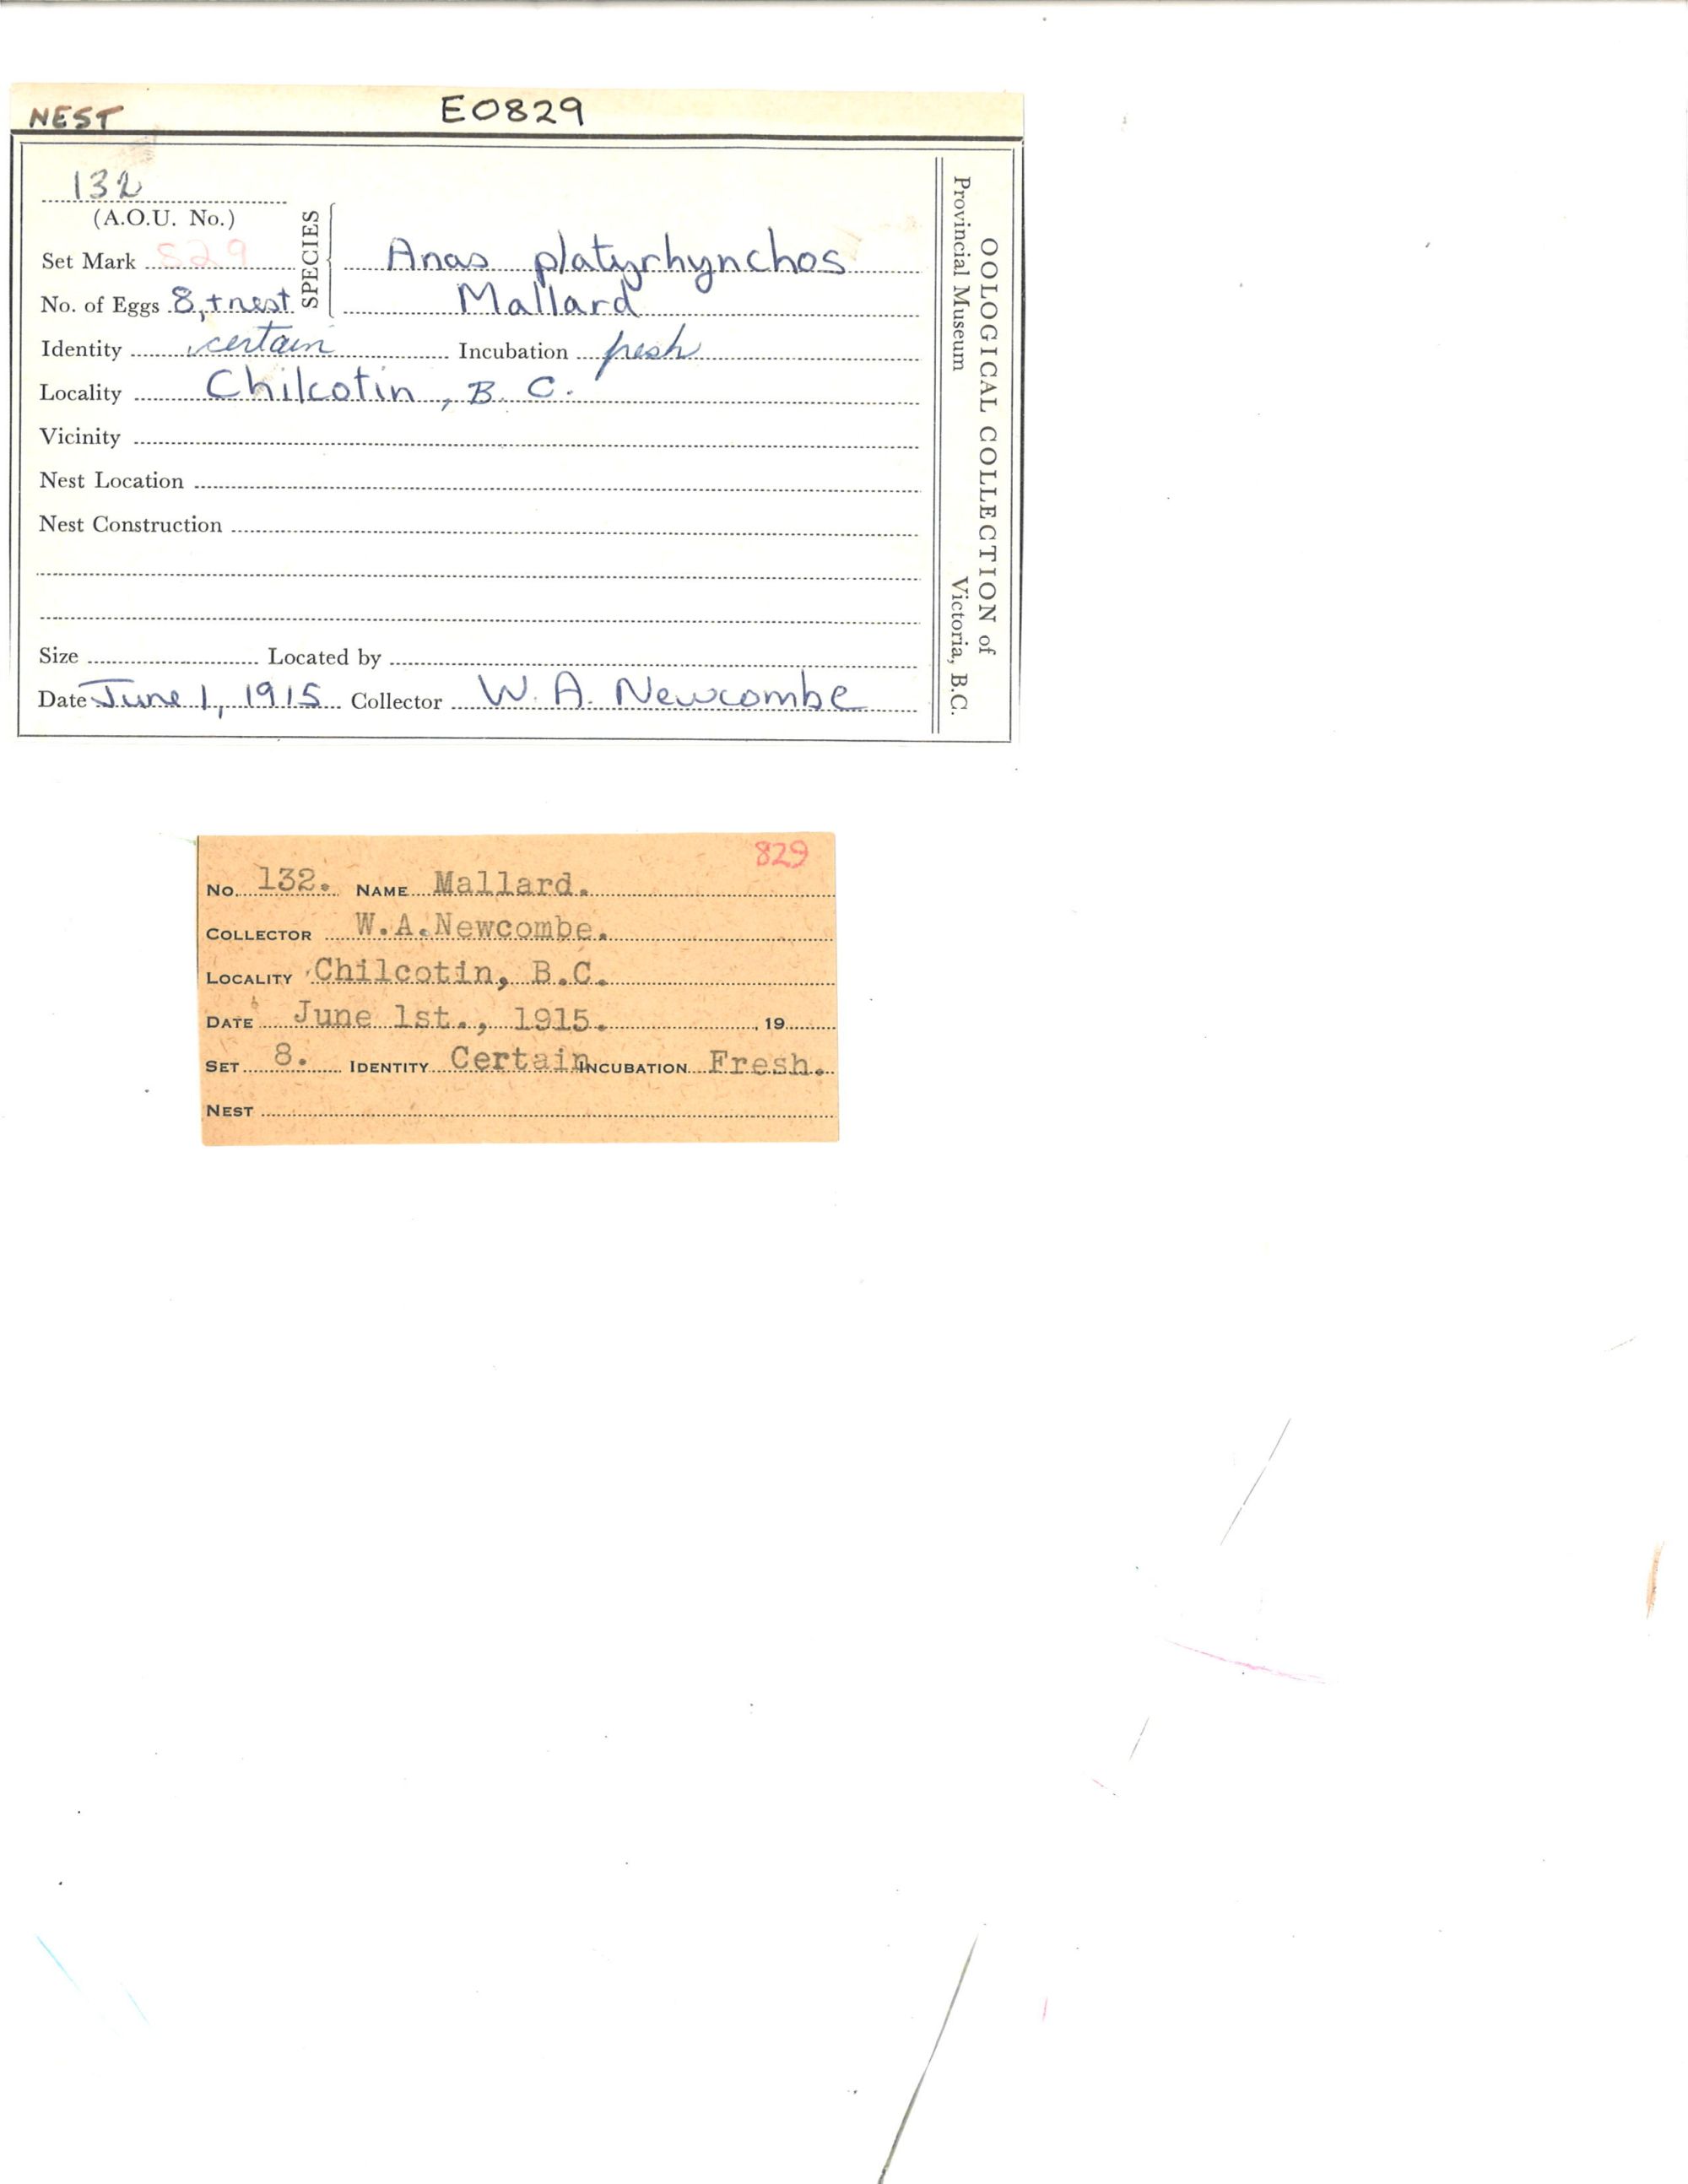 NEST E0829
132
(A.O.U. No.)
Set Mark 829
No. of Eggs 8, + nest
SPECIES
Anas platyrhynchos
Mallard
Identity certain Incubation fresh
Locality Chilcotin, B. C.
Vicinity
Nest Location
Nest Construction
Size Located by
Date June 1, 1915 Collector W. A. Newcombe
OOLOGICAL COLLECTION of
Provincial Museum Victoria, B.C.
829
No. 132. NAME Mallard.
COLLECTOR W.A.Newcombe.
LOCALITY Chilcotin, B.C.
DATE June 1st., 1915. , 19
SET 8. IDENTITY Certain INCUBATION Fresh.
NEST